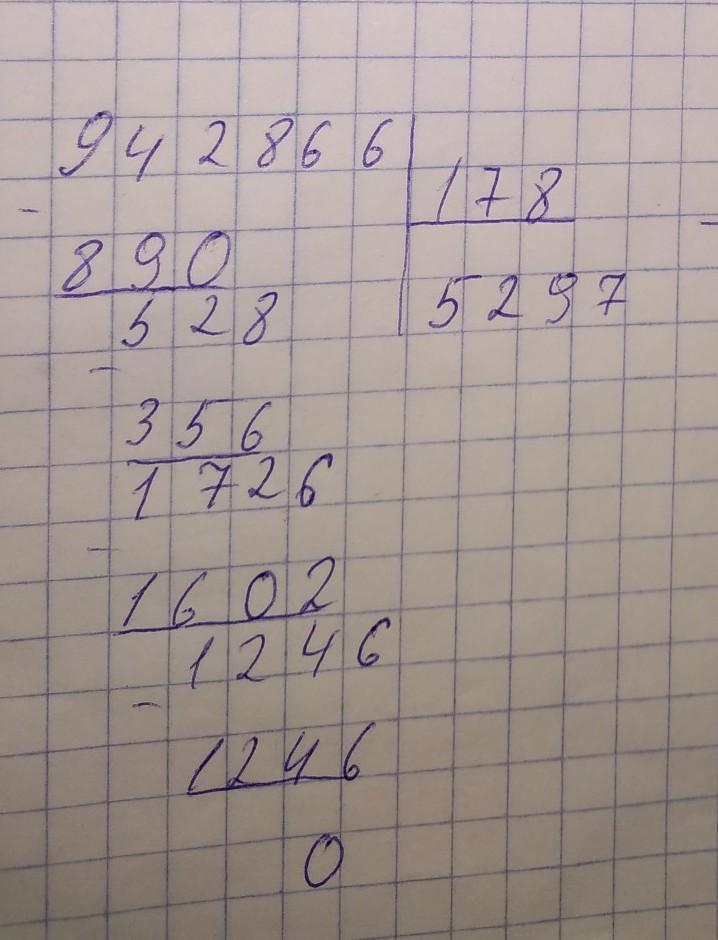 942866
178
- 890
5297
528
- 356
1726
- 1602
1246
- 1246
0